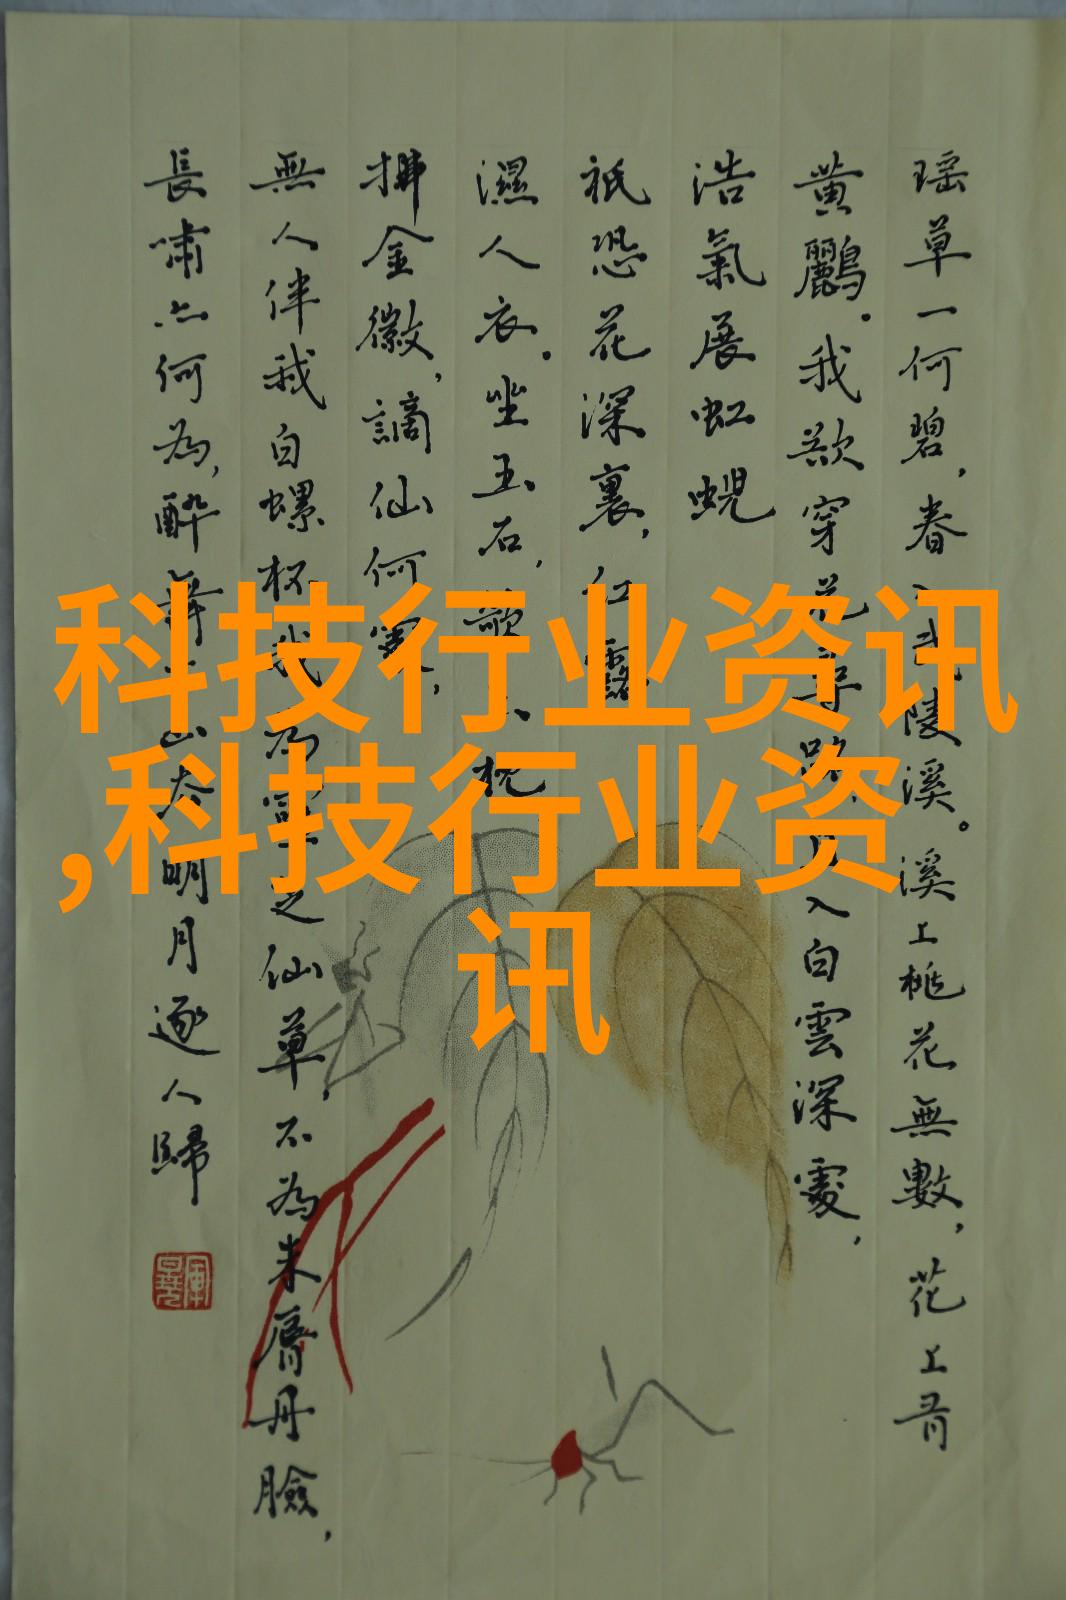 科技行业资讯
,科技行业资
讯
瑶草一何碧，春入武陵溪。溪上桃花無數，花上有
黃鸝。我欲穿花尋路，直入白雲深處，
浩氣展虹蜺
祇恐花深裏，紅露
濕人衣。坐玉石，欹玉枕
拂金徽，謫仙何處，
無人伴我白螺杯我為靈之仙草，不為朱脣丹臉，
長嘯亦何為，醉舞下山去明月逐人歸